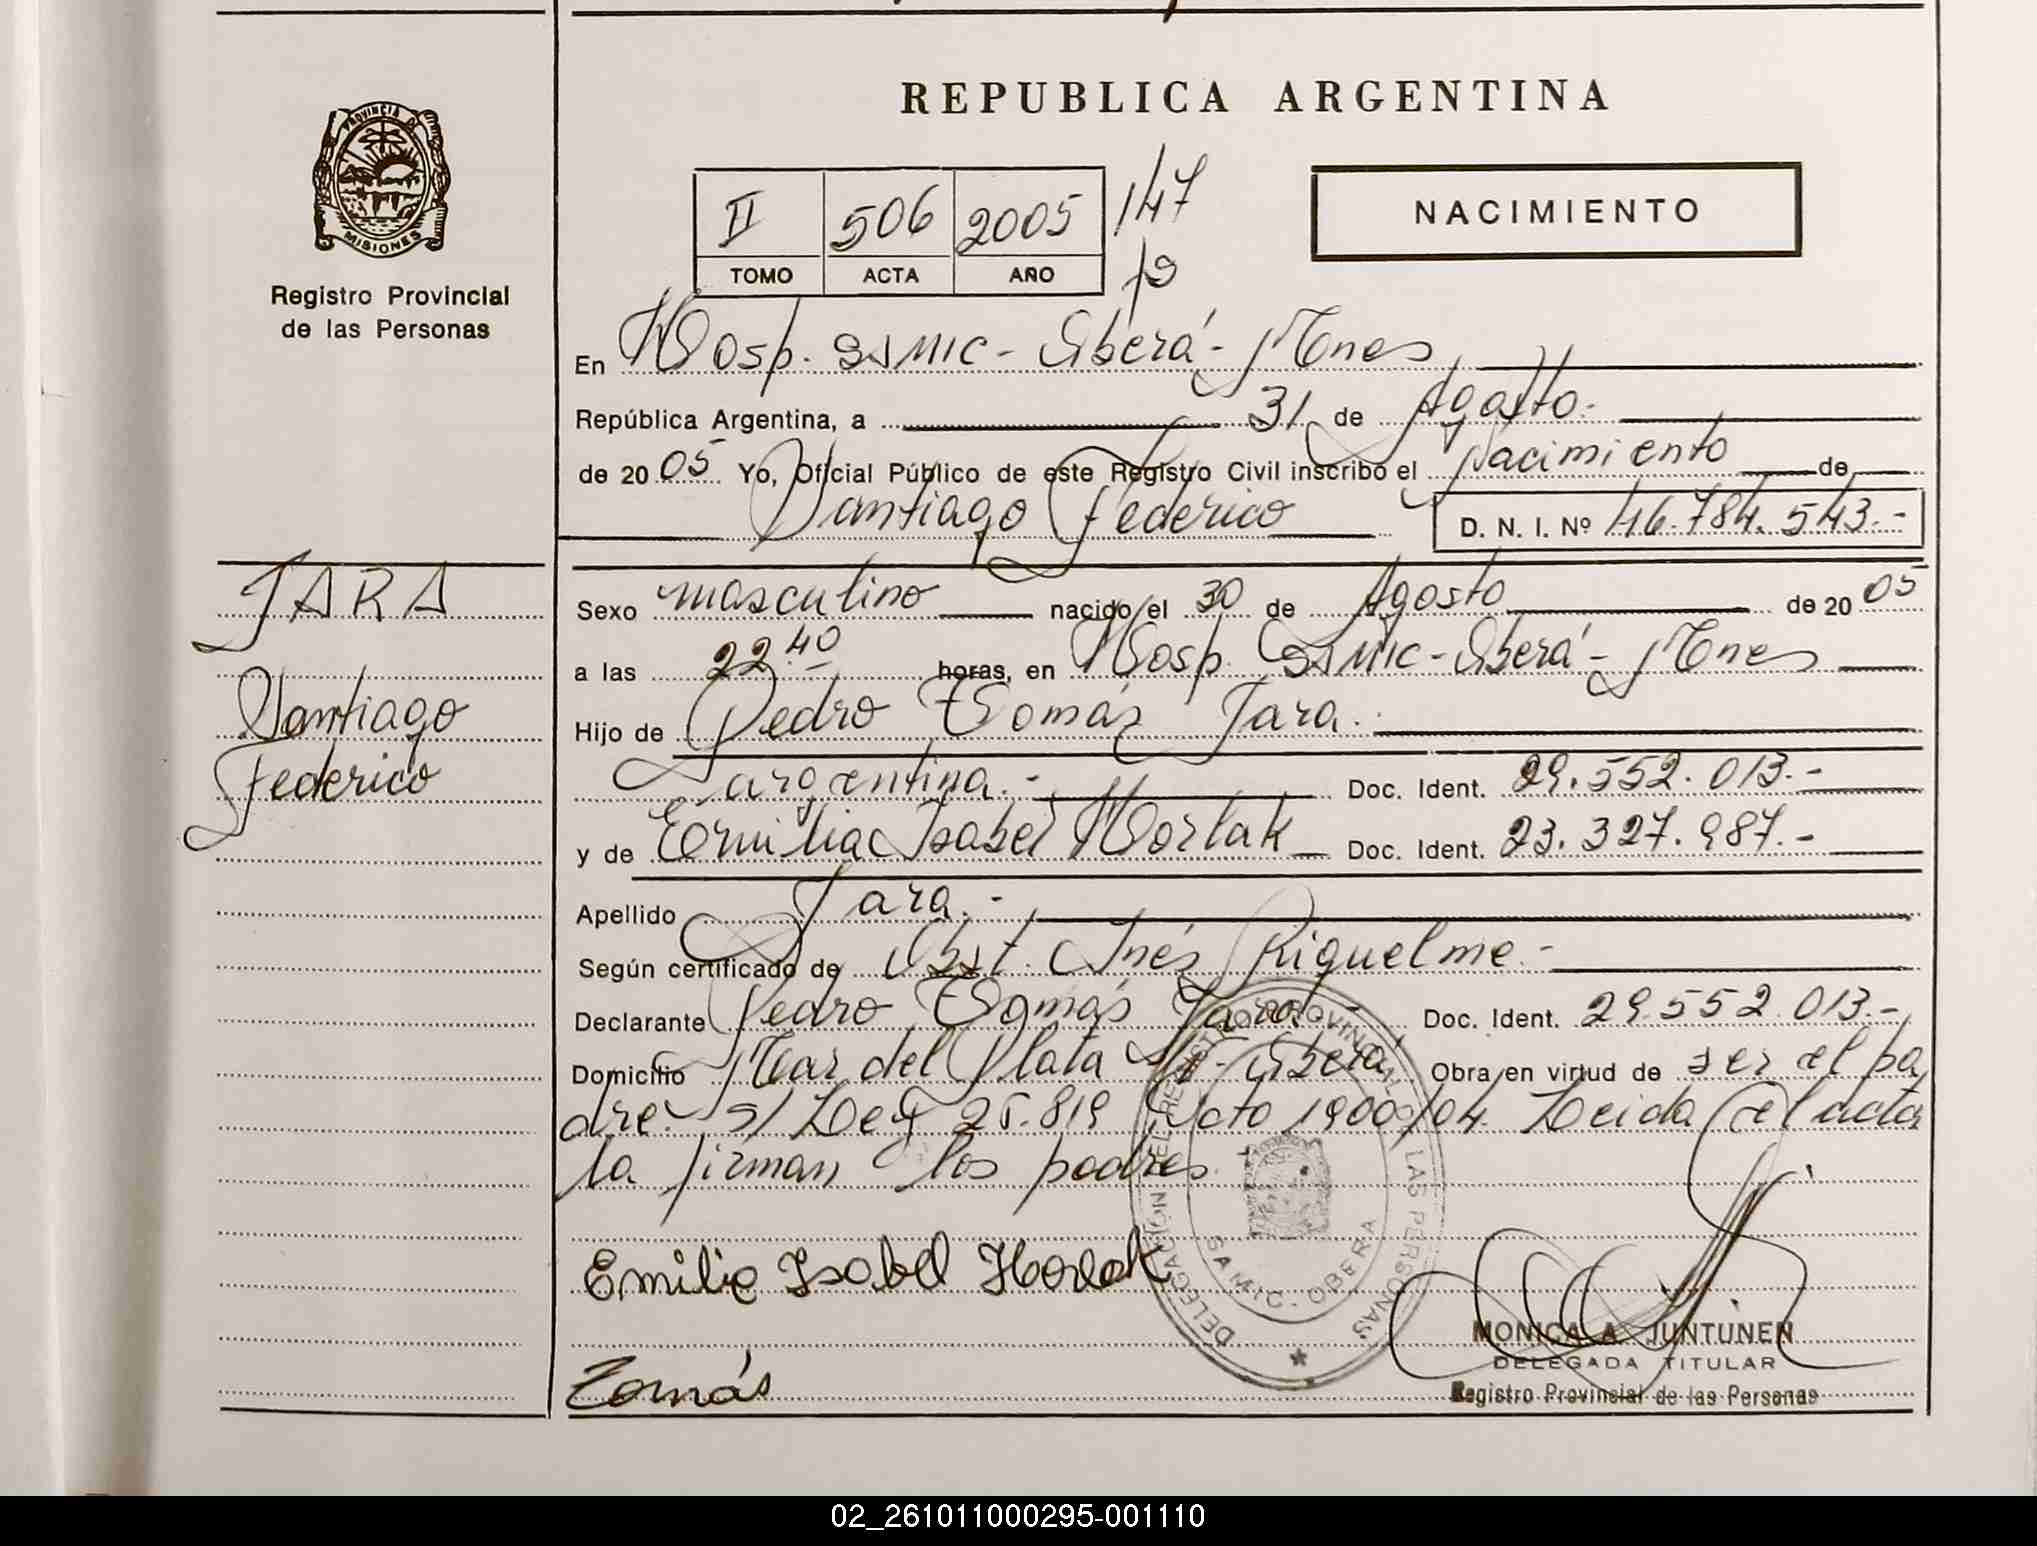 REPUBLICA ARGENTINA
PROVINCIA DE
MISIONES
Registro Provincial
de las Personas
II 506 2005 147
TOMO ACTA AÑO
NACIMIENTO
En Hosp. SAMIC - Oberá - Mnes
República Argentina, a 31 de Agosto.
de 20 05 Yo, Oficial Público de este Registro Civil inscribo el Nacimiento de
Santiago Federico D. N. I. Nº 46.784.543.-
JARA
Santiago
Federico
Sexo masculino nacido el 30 de Agosto de 20 05
a las 22.40 horas, en Hosp. SAMIC - Oberá - Mnes
Hijo de Pedro Tomás Jara.
argentina.- Doc. Ident. 29.552.013.-
y de Emilia Isabel Horlak Doc. Ident. 23.327.987.-
Apellido Jara.-
Según certificado de Obst. Inés Riquelme.-
Declarante Pedro Tomás Jara.- Doc. Ident. 29.552.013.-
Domicilio Mar del Plata - Oberá Obra en virtud de ser el pa
dre. s/ Ley 25.819 Dcto 1900/04. Leida el acta
la firman los padres.
Emilia Isabel Horlak
Tomás
DELEGACIÓN DEL REGISTRO PROVINCIAL DE LAS PERSONAS
SAMIC - OBERA
MONICA A. JUNTUNEN
DELEGADA TITULAR
Registro Provincial de las Personas
02_261011000295-001110